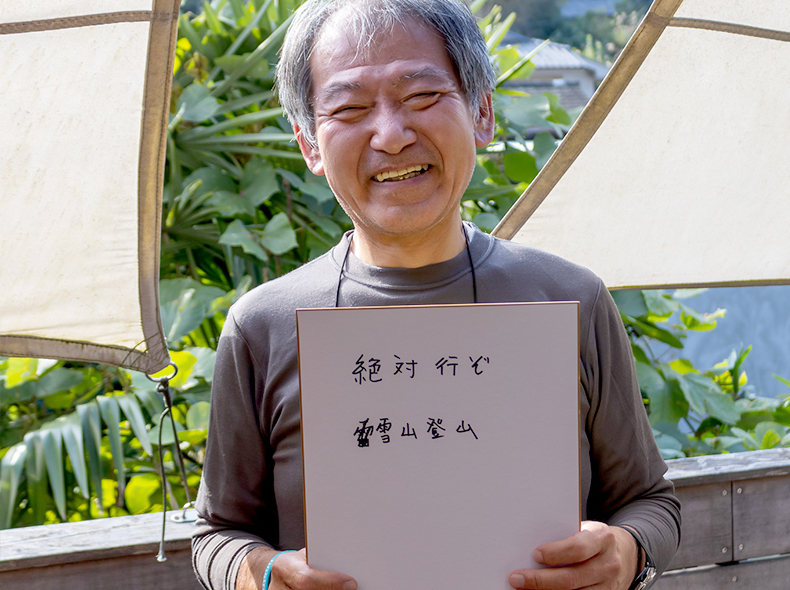 絶対 行ぞ
雪山登山